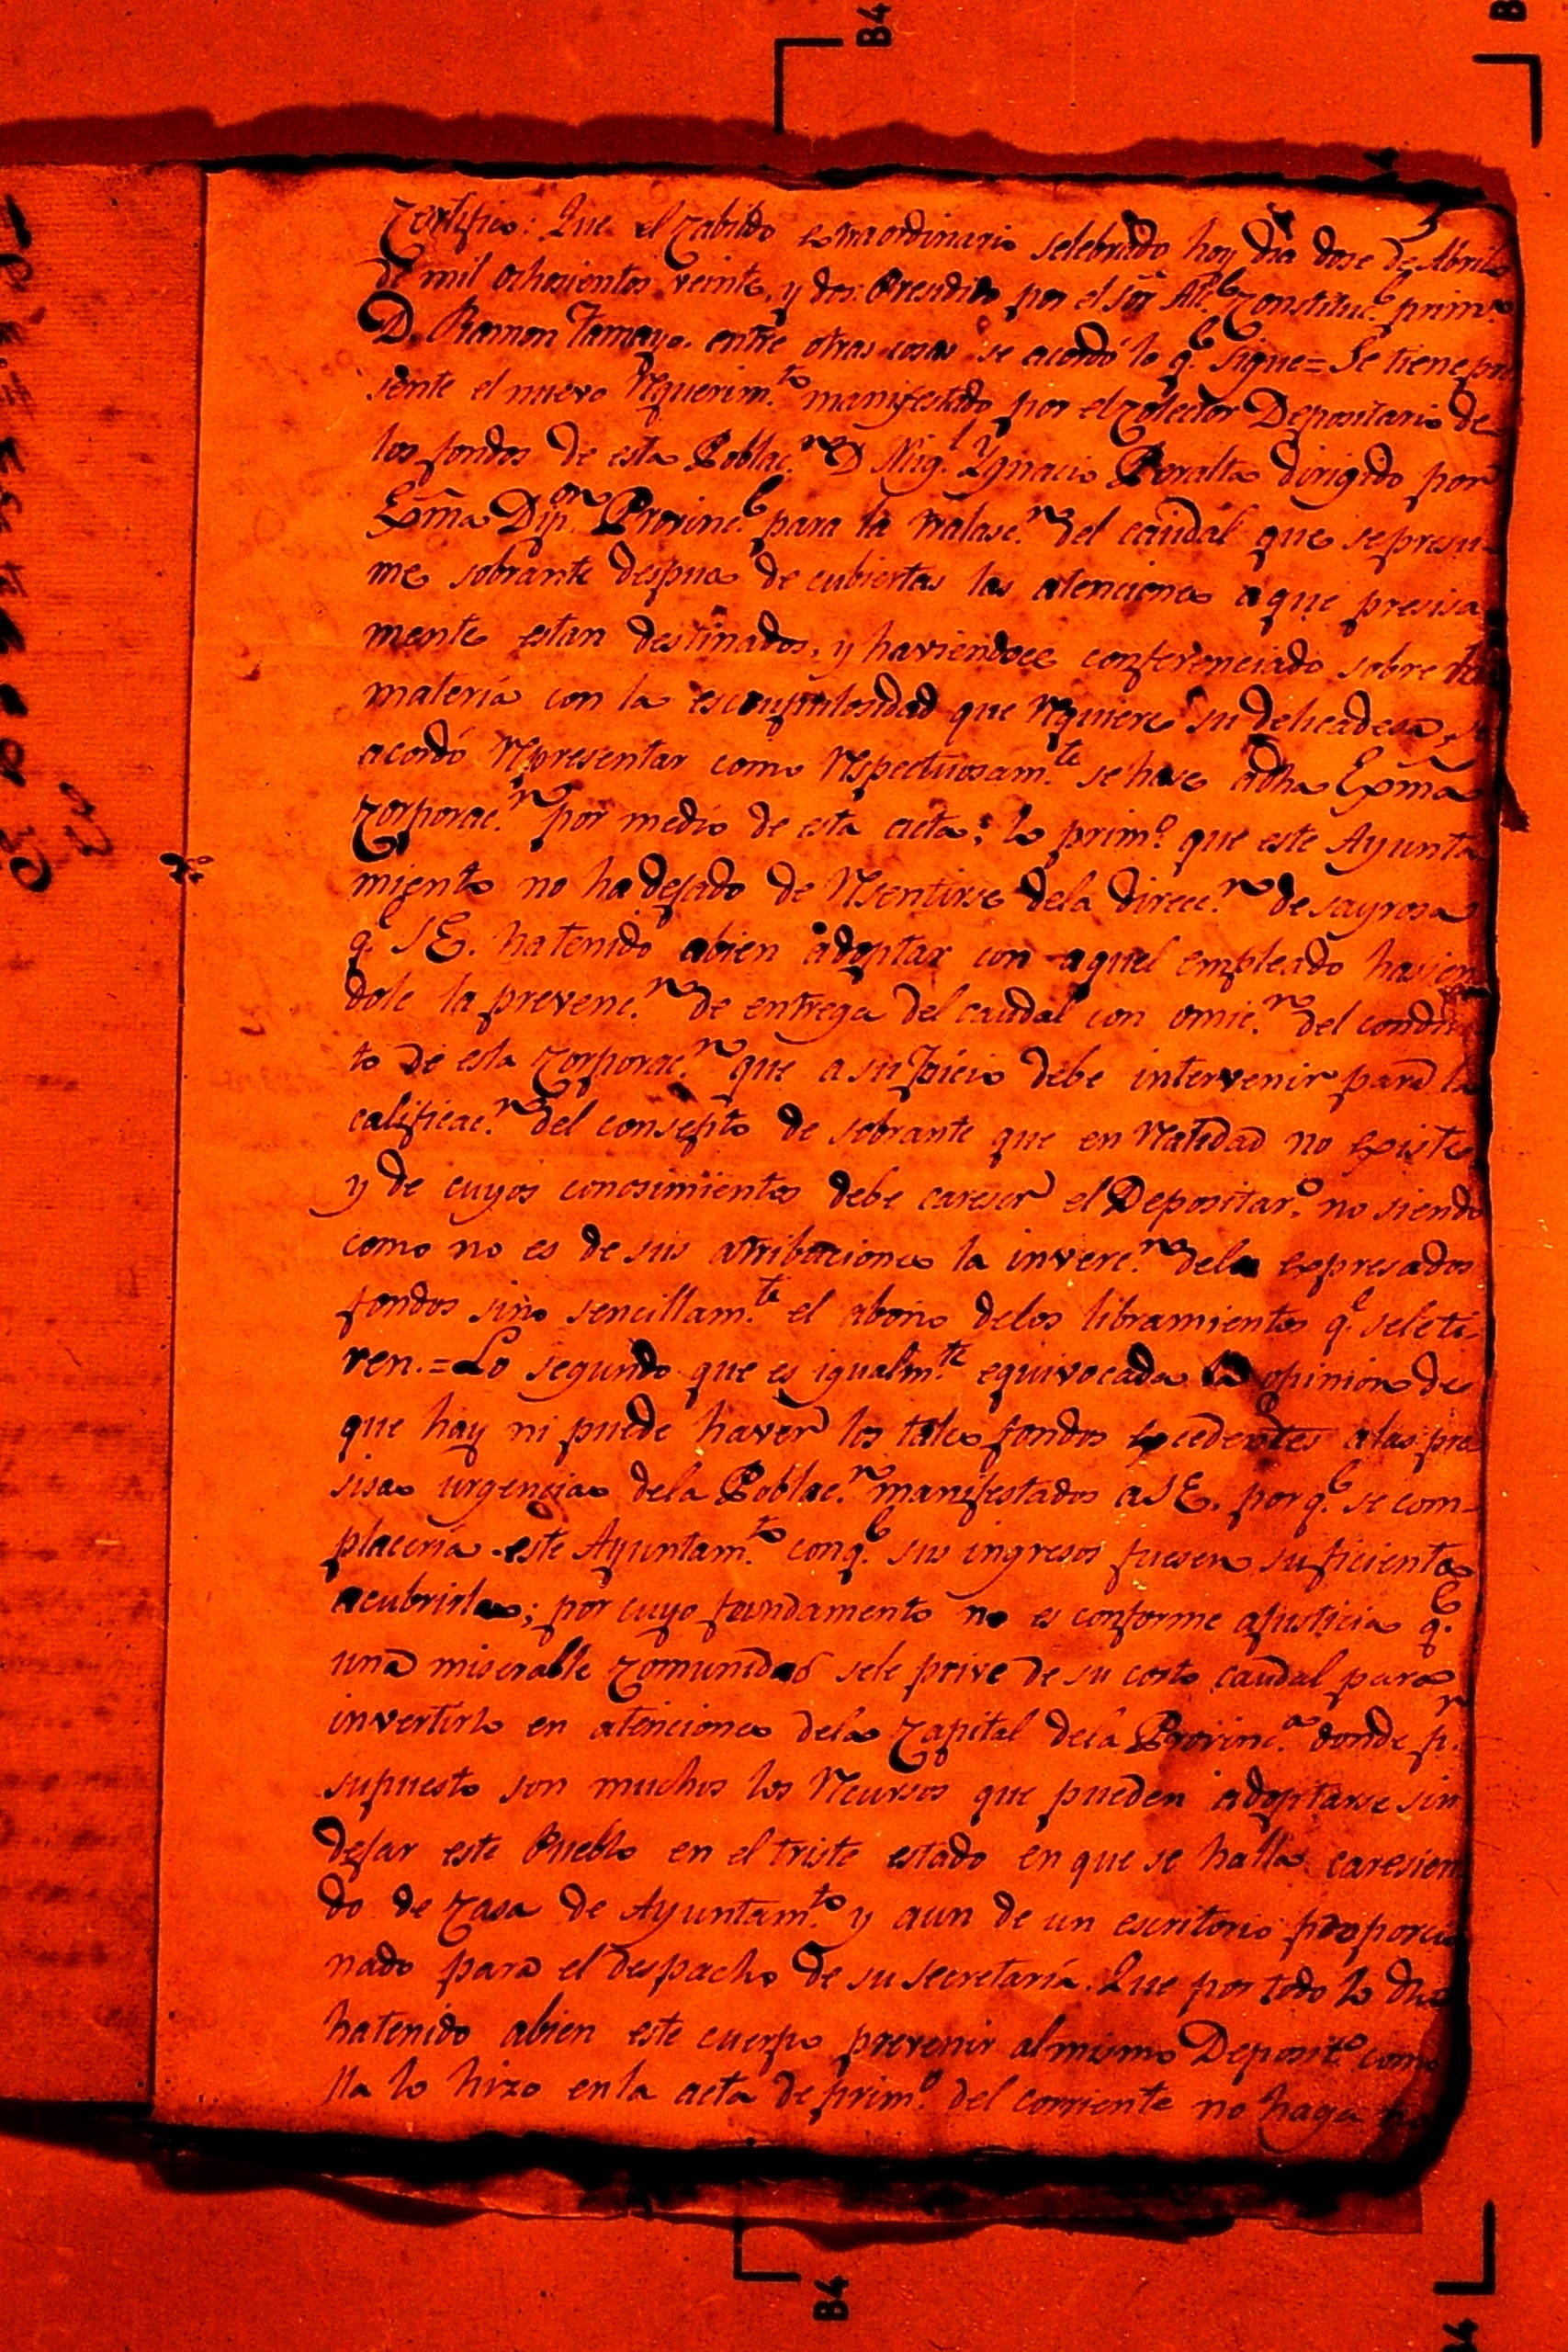 Certifico: Que el Cabildo extraordinario selebrado hoy dia dose de Abril
de mil ochosientos veinte, y dos: Presidido por el Sor. Alc.e Constituc.l prim.o
D. Ramon Tamayo. entre otras cosas se acordó lo q.e sigue = Se tiene pre
sente el nuevo Requerim.to manifestado por el Colector Depositario de
los fondos de esta Poblac.n D Mig.l Ygnacio Peralta dirigido por
Exma Dip.on Provinc.l para la tralasc.n del caudal que se presu-
me sobrante despues de cubiertas las atenciones a que presisa
mente estan destinados, y haviendoce conferenciado sobre la
materia con la escrupulosidad que Requiere su delicadesa, se
acordó Representar como Respectuosam.te se hase a dha Exma
Corporac.n por medio de esta acta; lo prim.o que este Ayunta
miento no ha dejado de Resentirse dela direcc.n desayrosa
q.e S E. ha tenido abien adoptar con aquel empleado hasien
dole la prevenc.n de entrega del caudal con omic.n del condu
to de esta Corporac.n que a su Juicio debe intervenir para la
calificac.n del consepto de sobrante que en Realidad no existe
y de cuyos conosimientos debe careser el Depositar.o no siendo
como no es de sus atribuciones la inverc.n delos expresados
fondos sino sencillam.te el abono delos libramientos q.e se le ti-
ren. = Lo segundo que es igualm.te equivocada la opinion de
que hay ni puede haver los tales fondos excedentes a las pre
sisas urgencias dela Poblac.n manifestados a S E. por q.e se com-
placeria este Ayuntam.to con q.e sus ingresos fuesen suficientes
a cubrirlas; por cuyo fundamento no es conforme a justicia q.e
una miserable Comunidad se le prive de su corto caudal para
invertirlo en atenciones dela Capital dela Provinc.a donde p.r
supuesto son muchos los Recursos que pueden adoptarse sin
dejar este Pueblo en el triste estado en que se halla caresien
do de Casa de Ayuntam.to y aun de un escritorio proporcio
nado para el despacho de su secretaría. Que por todo lo dho
ha tenido abien este cuerpo prevenir al mismo Deposit.o como
lla lo hizo en la acta de prim.o del corriente no haga